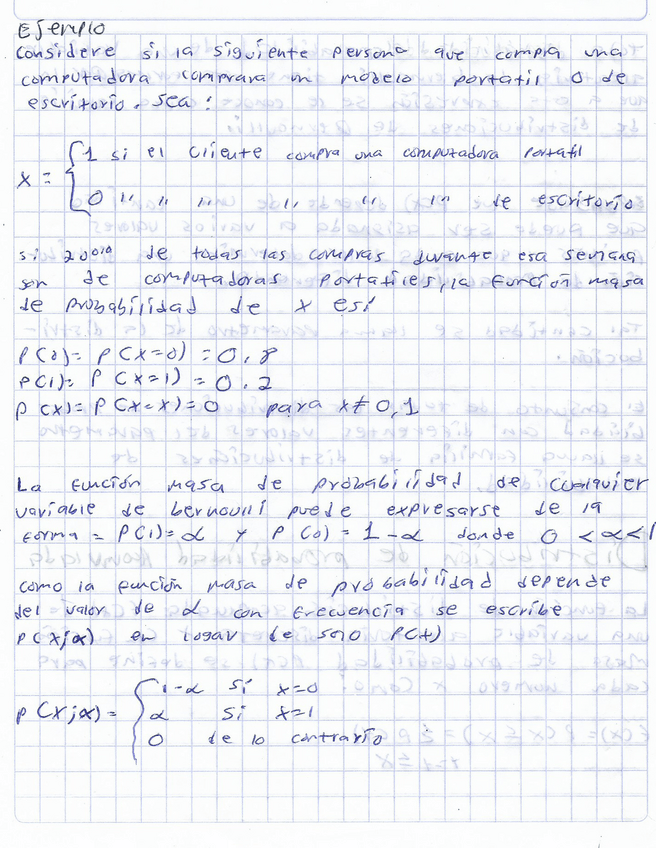 Ejemplo
Considere si la siguiente persona que compra una
computadora comprara un modelo portatil o de
escritorio. Sea:
x = { 1 si el cliente compra una computadora portatil
0 " " " " " " de escritorio
si 20% de todas las compras durante esa semana
son de computadoras portatiles, la función masa
de probabilidad de x es:
P(0) = P(X=0) = 0.8
P(1) = P(X=1) = 0.2
P(X) = P(X=x) = 0 para x ≠ 0,1
La función masa de probabilidad de cualquier
variable de bernoulli puede expresarse de la
forma = P(1) = α y P(0) = 1-α donde 0 < α < 1
como la función masa de probabilidad depende
del valor de α con frecuencia se escribe
P(X;α) en logar de solo P(x)
P(X;α) = { 1-α si x=0
α si x=1
0 de lo contrario